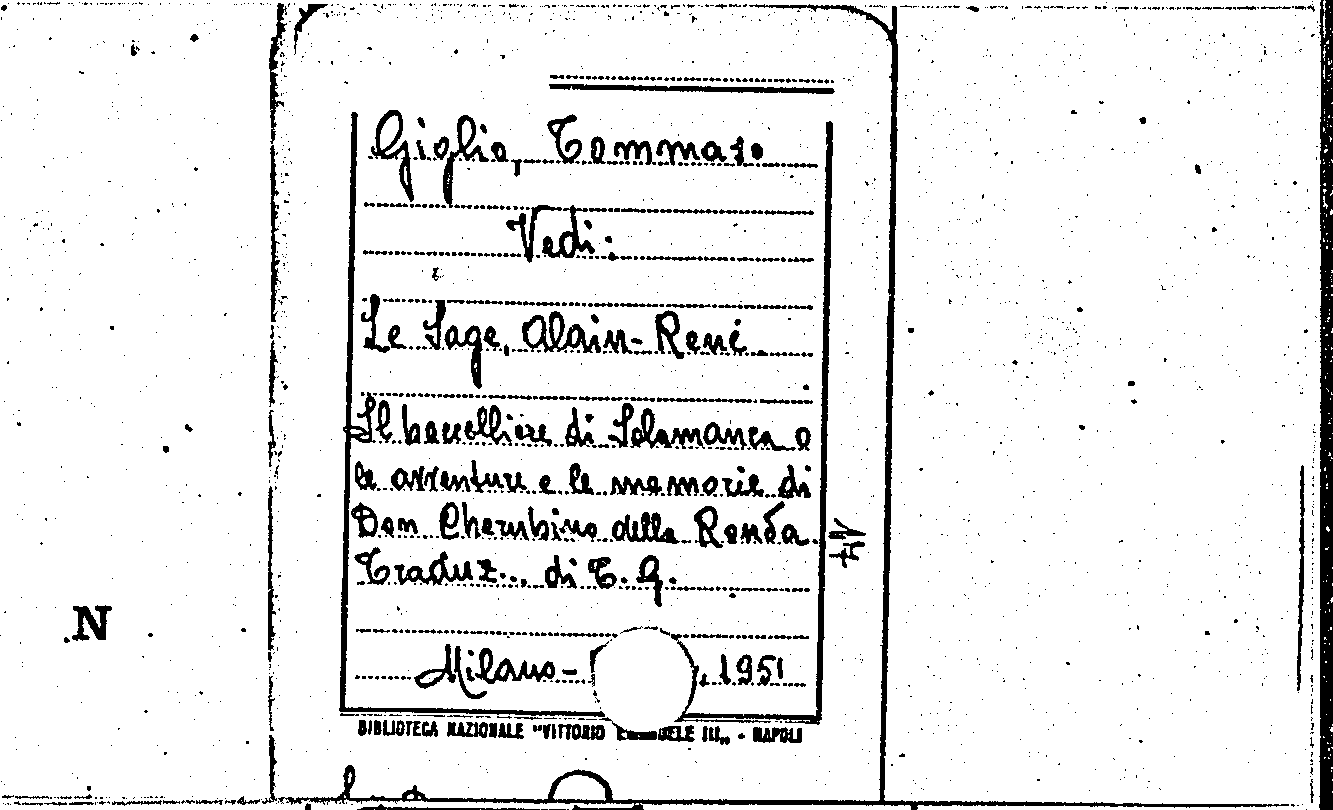 Giglio, Tommaso
Vedi:
Le Sage, Alain-René
Il baccelliere di Salamanca o
le avventure e le memorie di
Don Cherubino della Ronda.
Traduz... di T. G.
Milano- , 1951
BIBLIOTECA NAZIONALE "VITTORIO EMANUELE III„ - NAPOLI
N